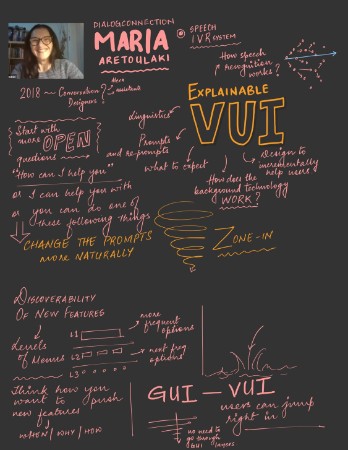 DIALOGCONNECTION
MARIA
ARETOULAKI
SPEECH
IVR SYSTEM
How speech
recognition
works?
2018 ~ Conversation
Designers
EXPLAINABLE
VUI
linguistics
Prompts
and re prompts
what to expect
How does the
background technology
WORK?
Design to
incrementally
help users
Start with
more OPEN
questions
"How can I help you
or I can help you with
or you can do one of
these following things
CHANGE THE PROMPTS
more NATURALLY
ZONE-IN
DISCOVERABILITY
OF NEW FEATURES
Levels
of Menus
L1
L2
L3
more
frequent
options
next freq
options
Think how you
want to push
new features
WHEN / WHY / HOW
GUI — VUI
users can jump
right in
no need to
go through
GUI layers